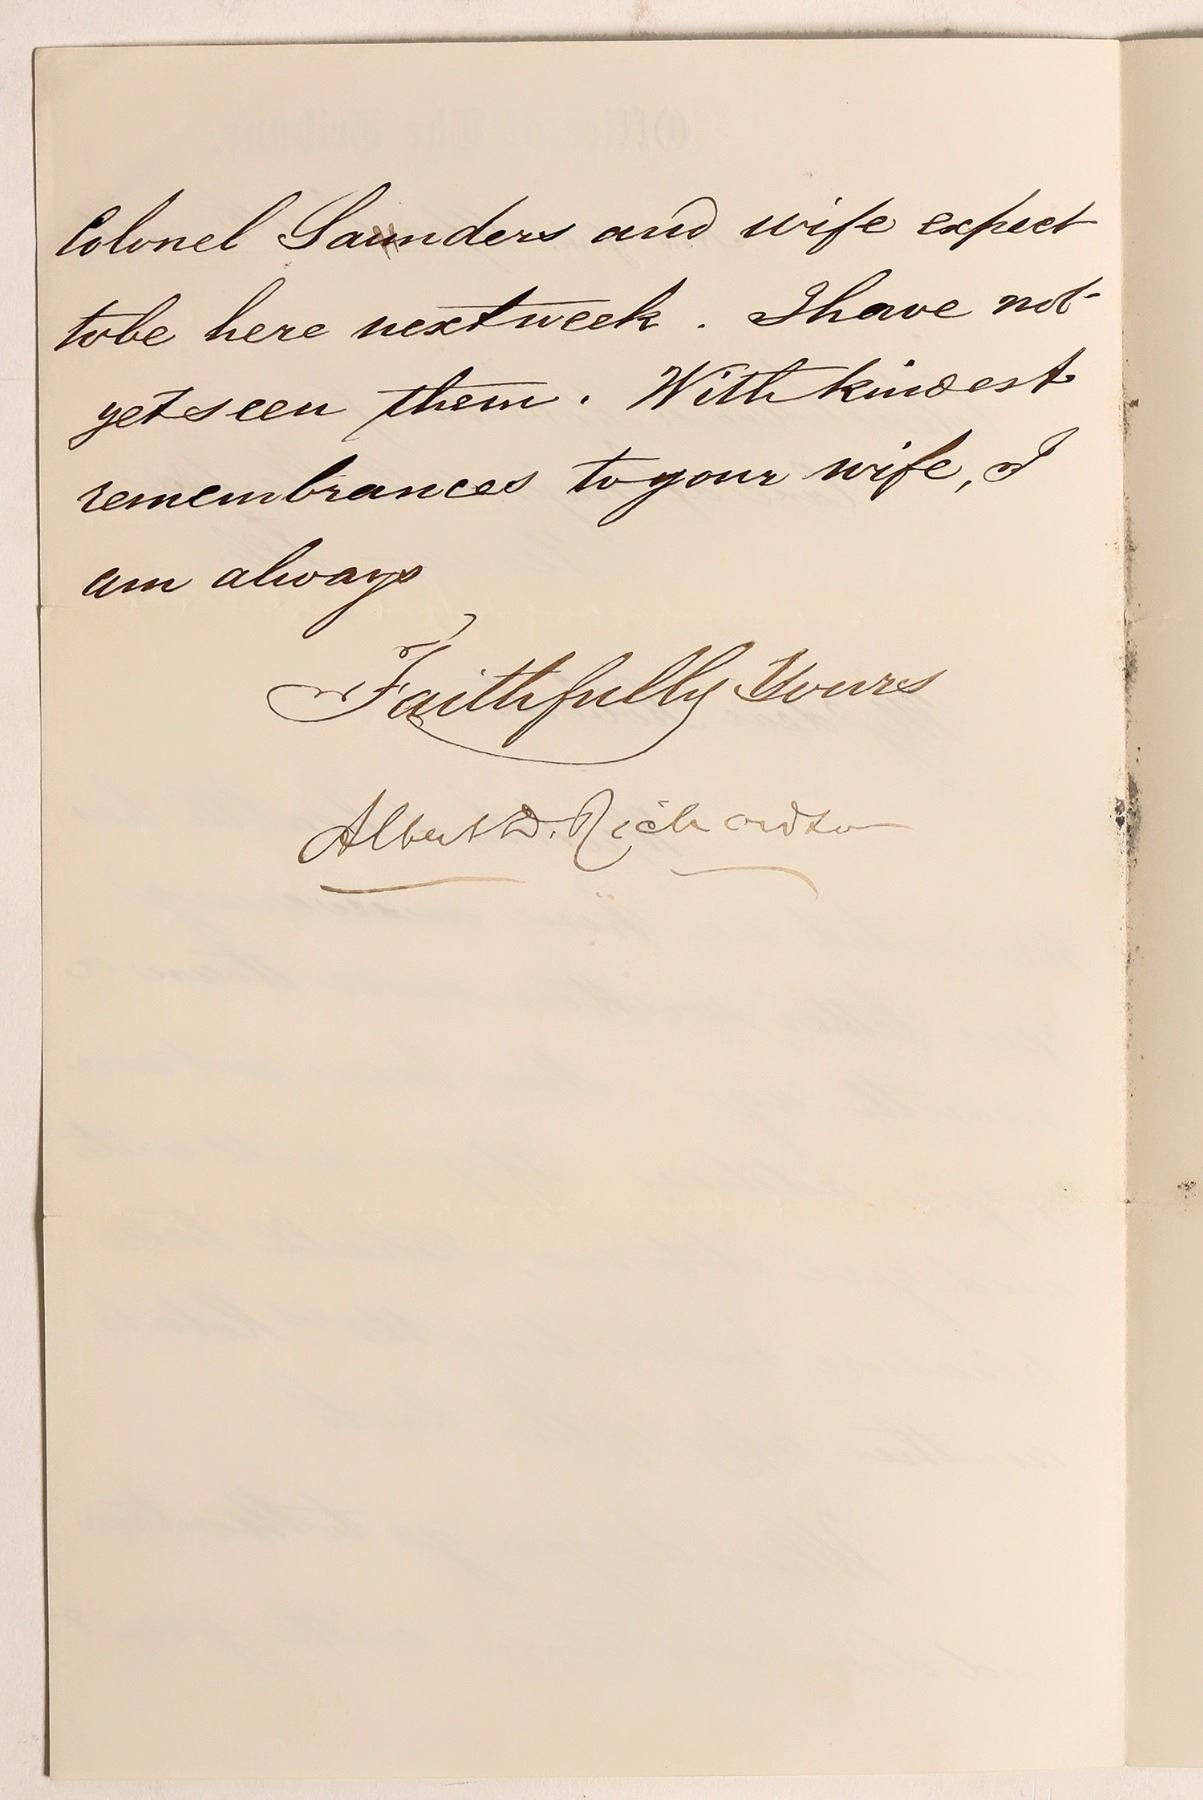 Colonel Saunders and wife expect
to be here next week. I have not
yet seen them. With kindest
remembrances to your wife, I
am always
Faithfully Yours
Albert D. Richardson